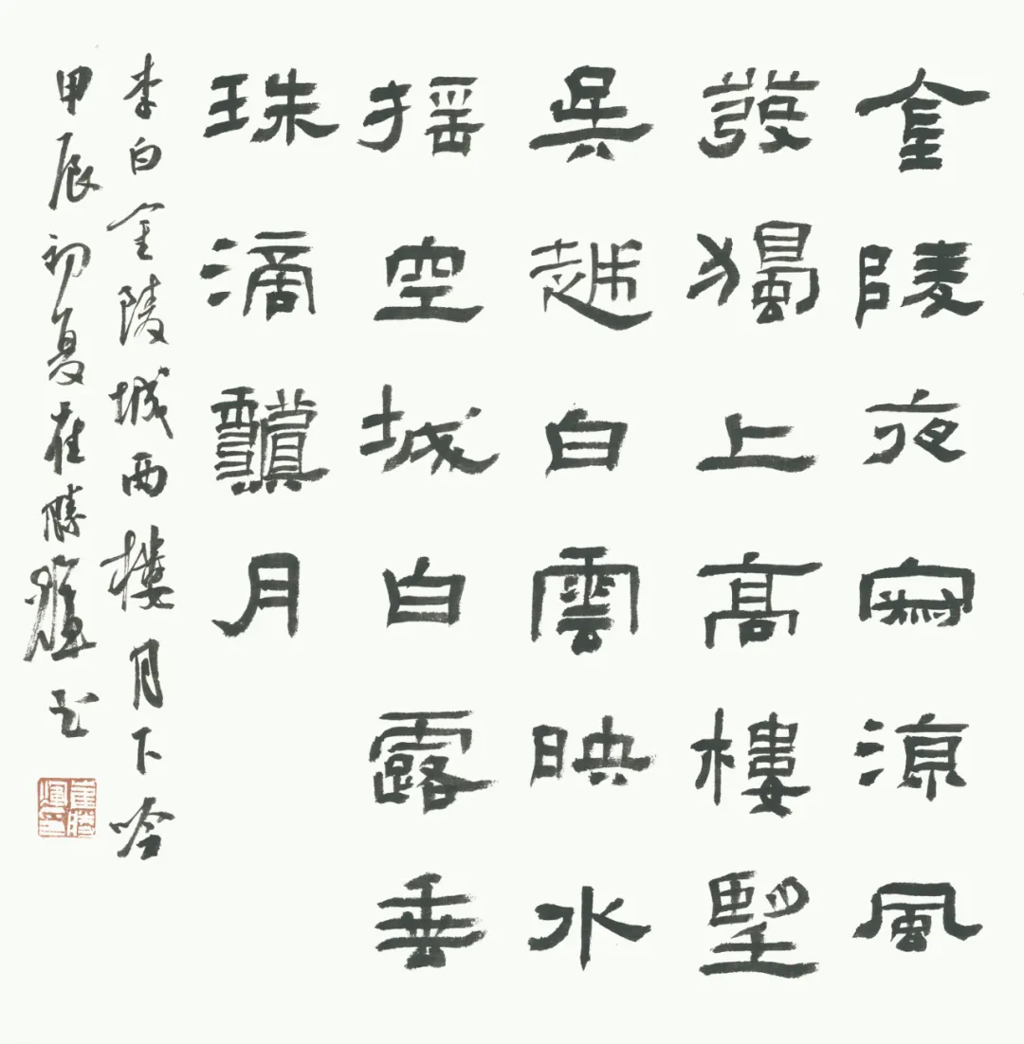 金陵夜寂涼風
發獨上高樓望
吳越白雲映水
搖空城白露垂
珠滴月
李白金陵城西樓月下吟
甲辰初夏崔勝书